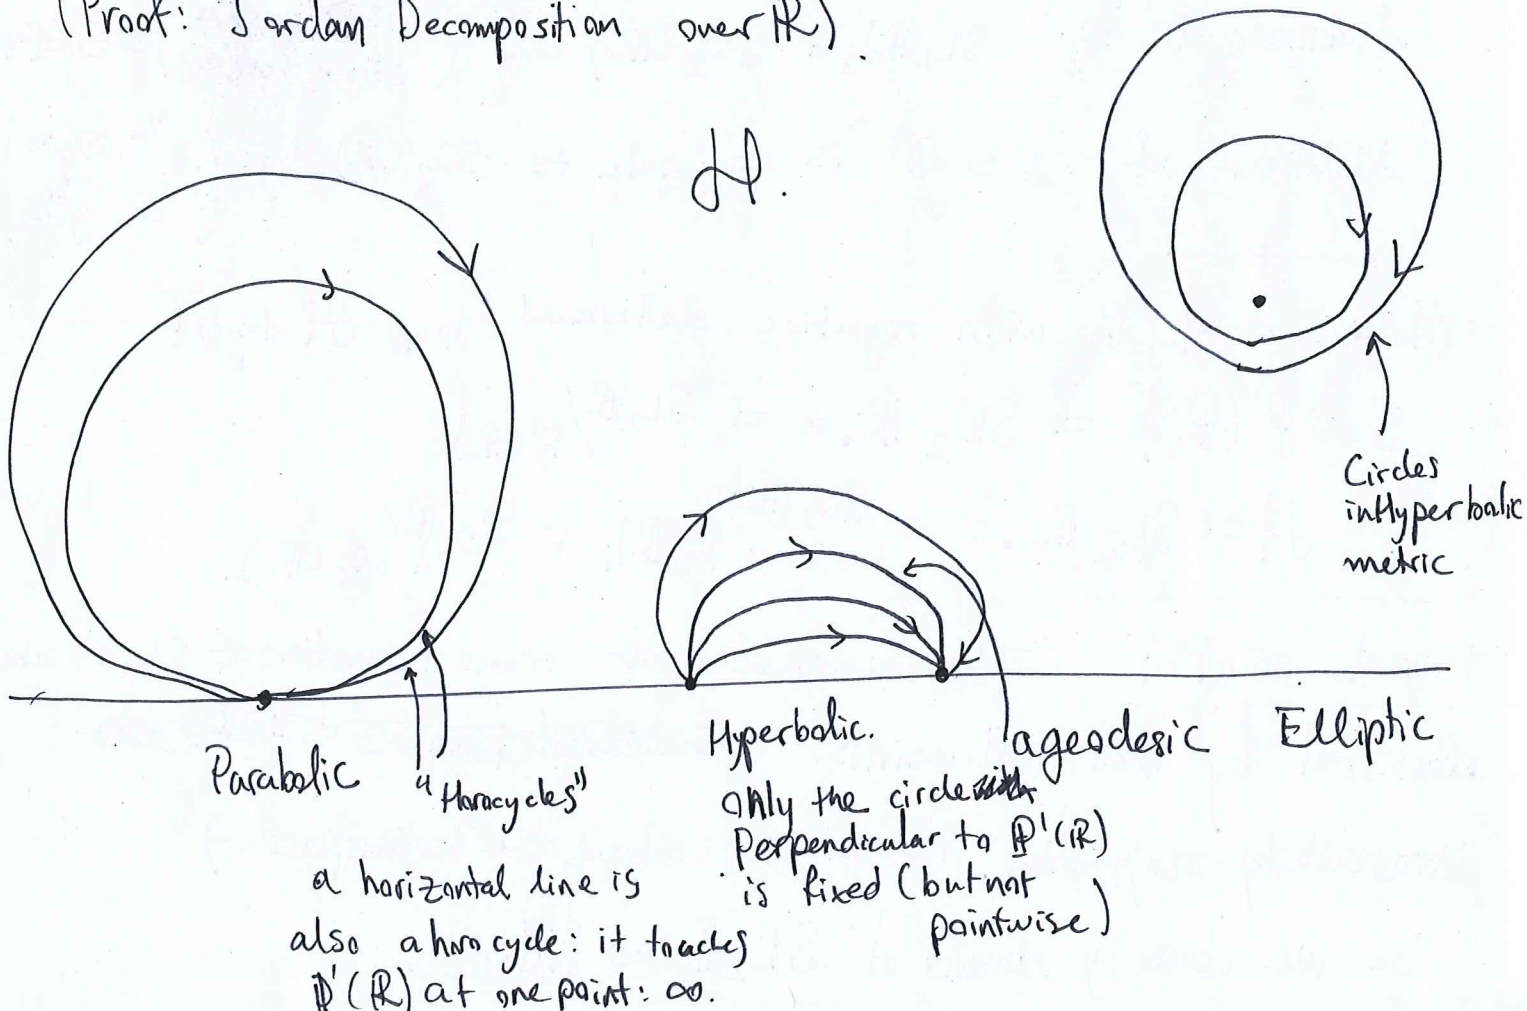 (Proof: Jordan Decomposition over ℝ).
H.
Circles
in Hyperbolic
metric
Parabolic
"Horocycles"
a horizontal line is
also a horocycle: it touches
ℙ¹(ℝ) at one point: ∞.
Hyperbolic.
Only the circle
Perpendicular to ℙ¹(ℝ)
is fixed (but not
pointwise)
a geodesic
Elliptic